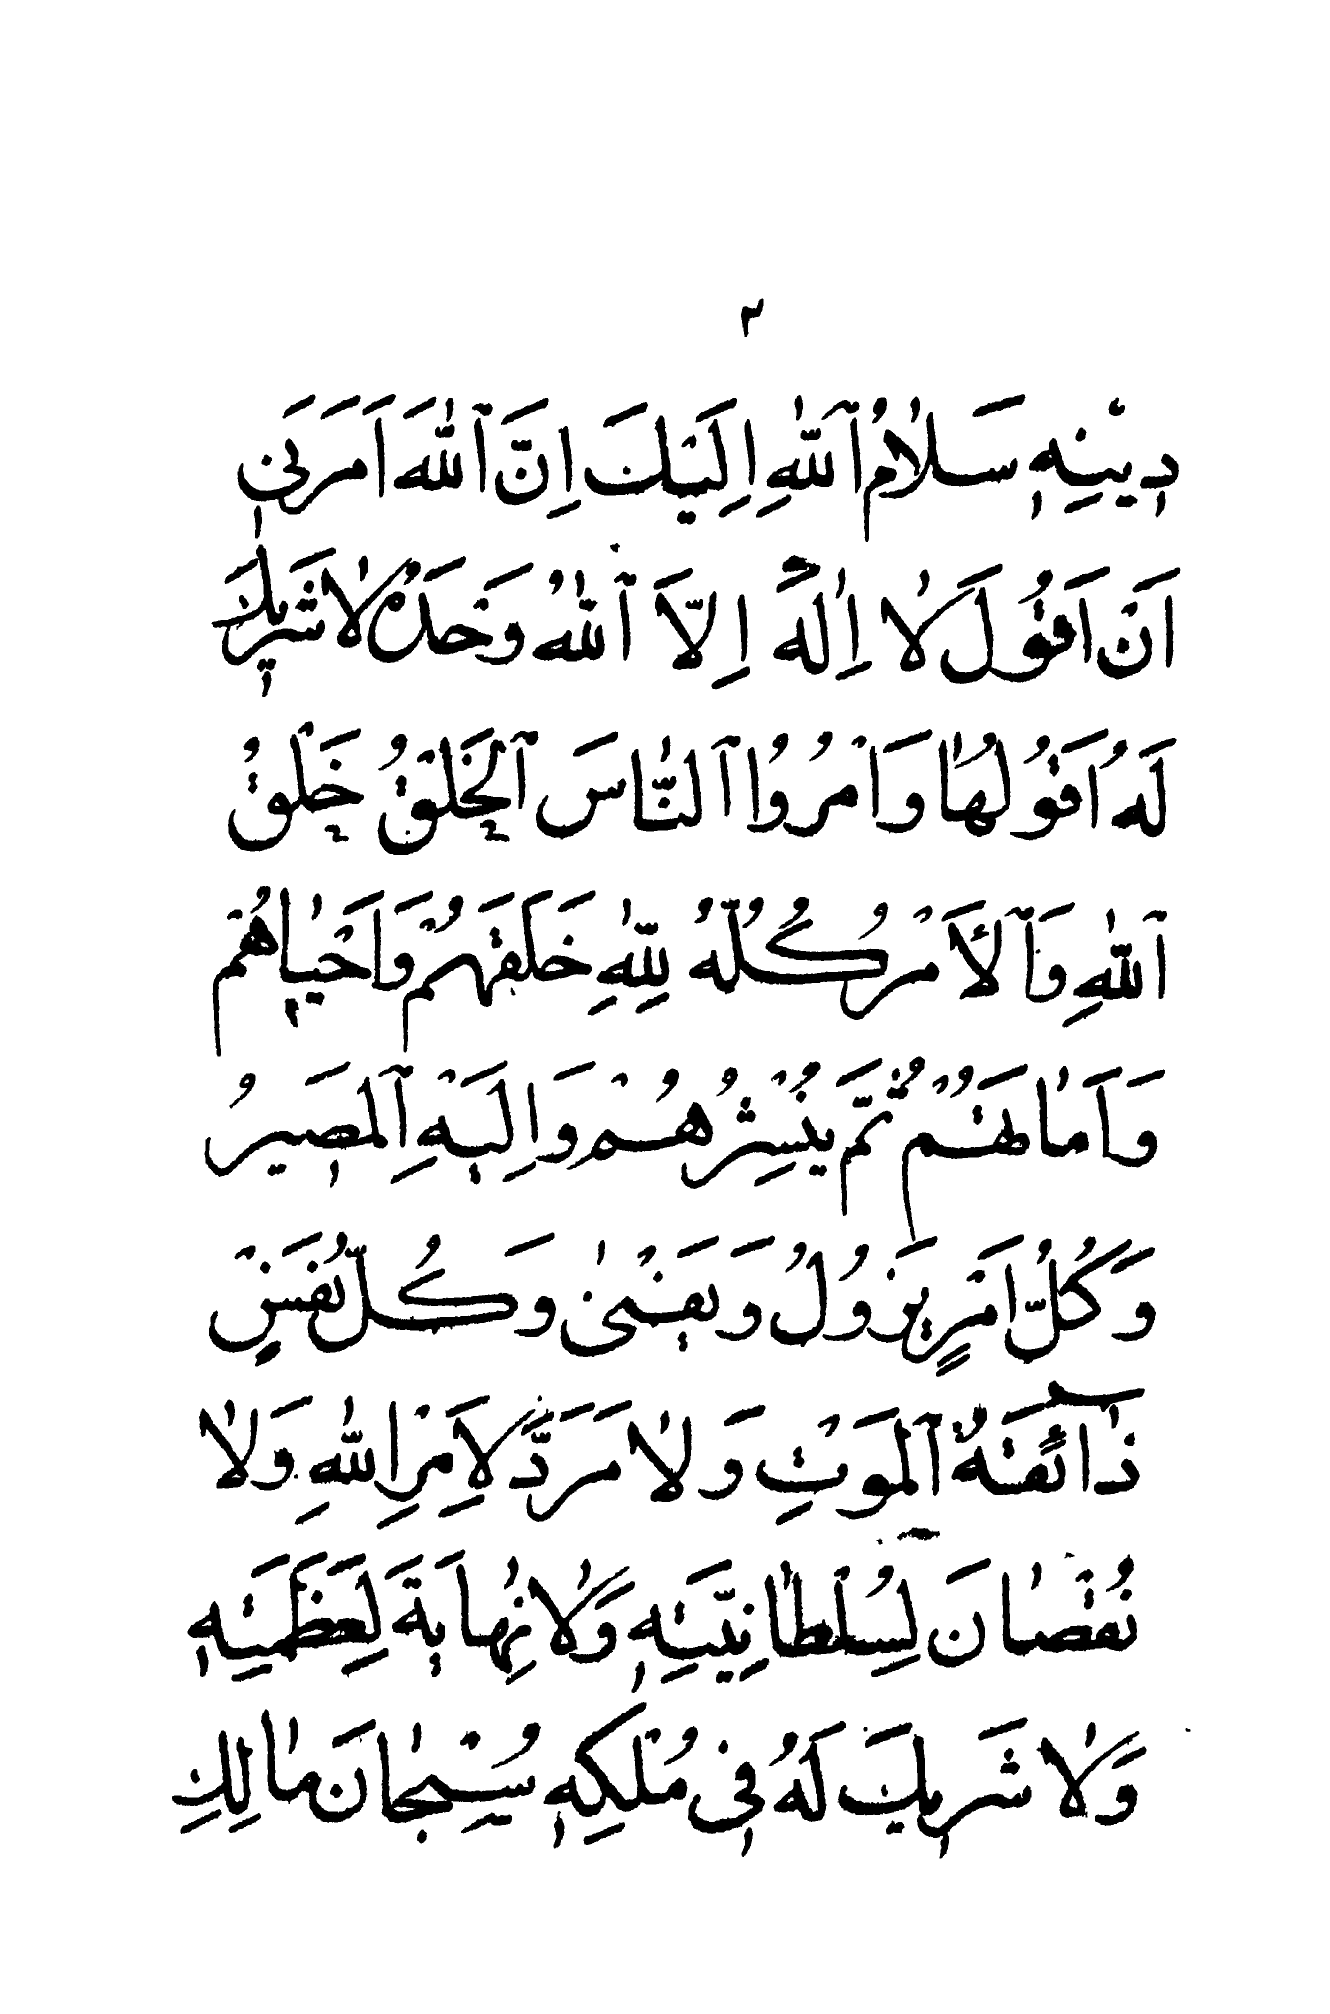 ٢
دِينِهٖ سَلَامُ ٱللّٰهِ اِلَيْكَ اِنَّ ٱللّٰهَ اَمَرَنٖى
اَنْ اَقُولَ لَا اِلٰهَ اِلَّا ٱللّٰهُ وَحْدَهُ لَا شَرٖيكَ
لَهُ اَقُولُهَا وَاٰمُرُوا ٱلنَّاسَ ٱلْخَلْقُ خَلْقُ
ٱللّٰهِ وَٱلْاَمْرُ كُلُّهُ لِلّٰهِ خَلَقَهُمْ وَاَحْيَاهُمْ
وَاَمَاتَهُمْ ثُمَّ يَنْشُرُهُمْ وَاِلَيْهِ ٱلْمَصٖيرُ
وَكُلُّ اَمْرٍ يَزُولُ وَيَفْنٰى وَكُلُّ نَفْسٍ
ذَائِقَةُ ٱلْمَوْتِ وَلَا مَرَدَّ لِاَمْرِ اللّٰهِ وَلَا
نُقْصَانَ لِسُلْطَانِيَّتِهٖ وَلَا نِهَايَةَ لِعَظَمَتِهٖ
وَلَا شَرٖيكَ لَهُ فٖى مُلْكِهٖ سُبْحَانَ مَالِكِ